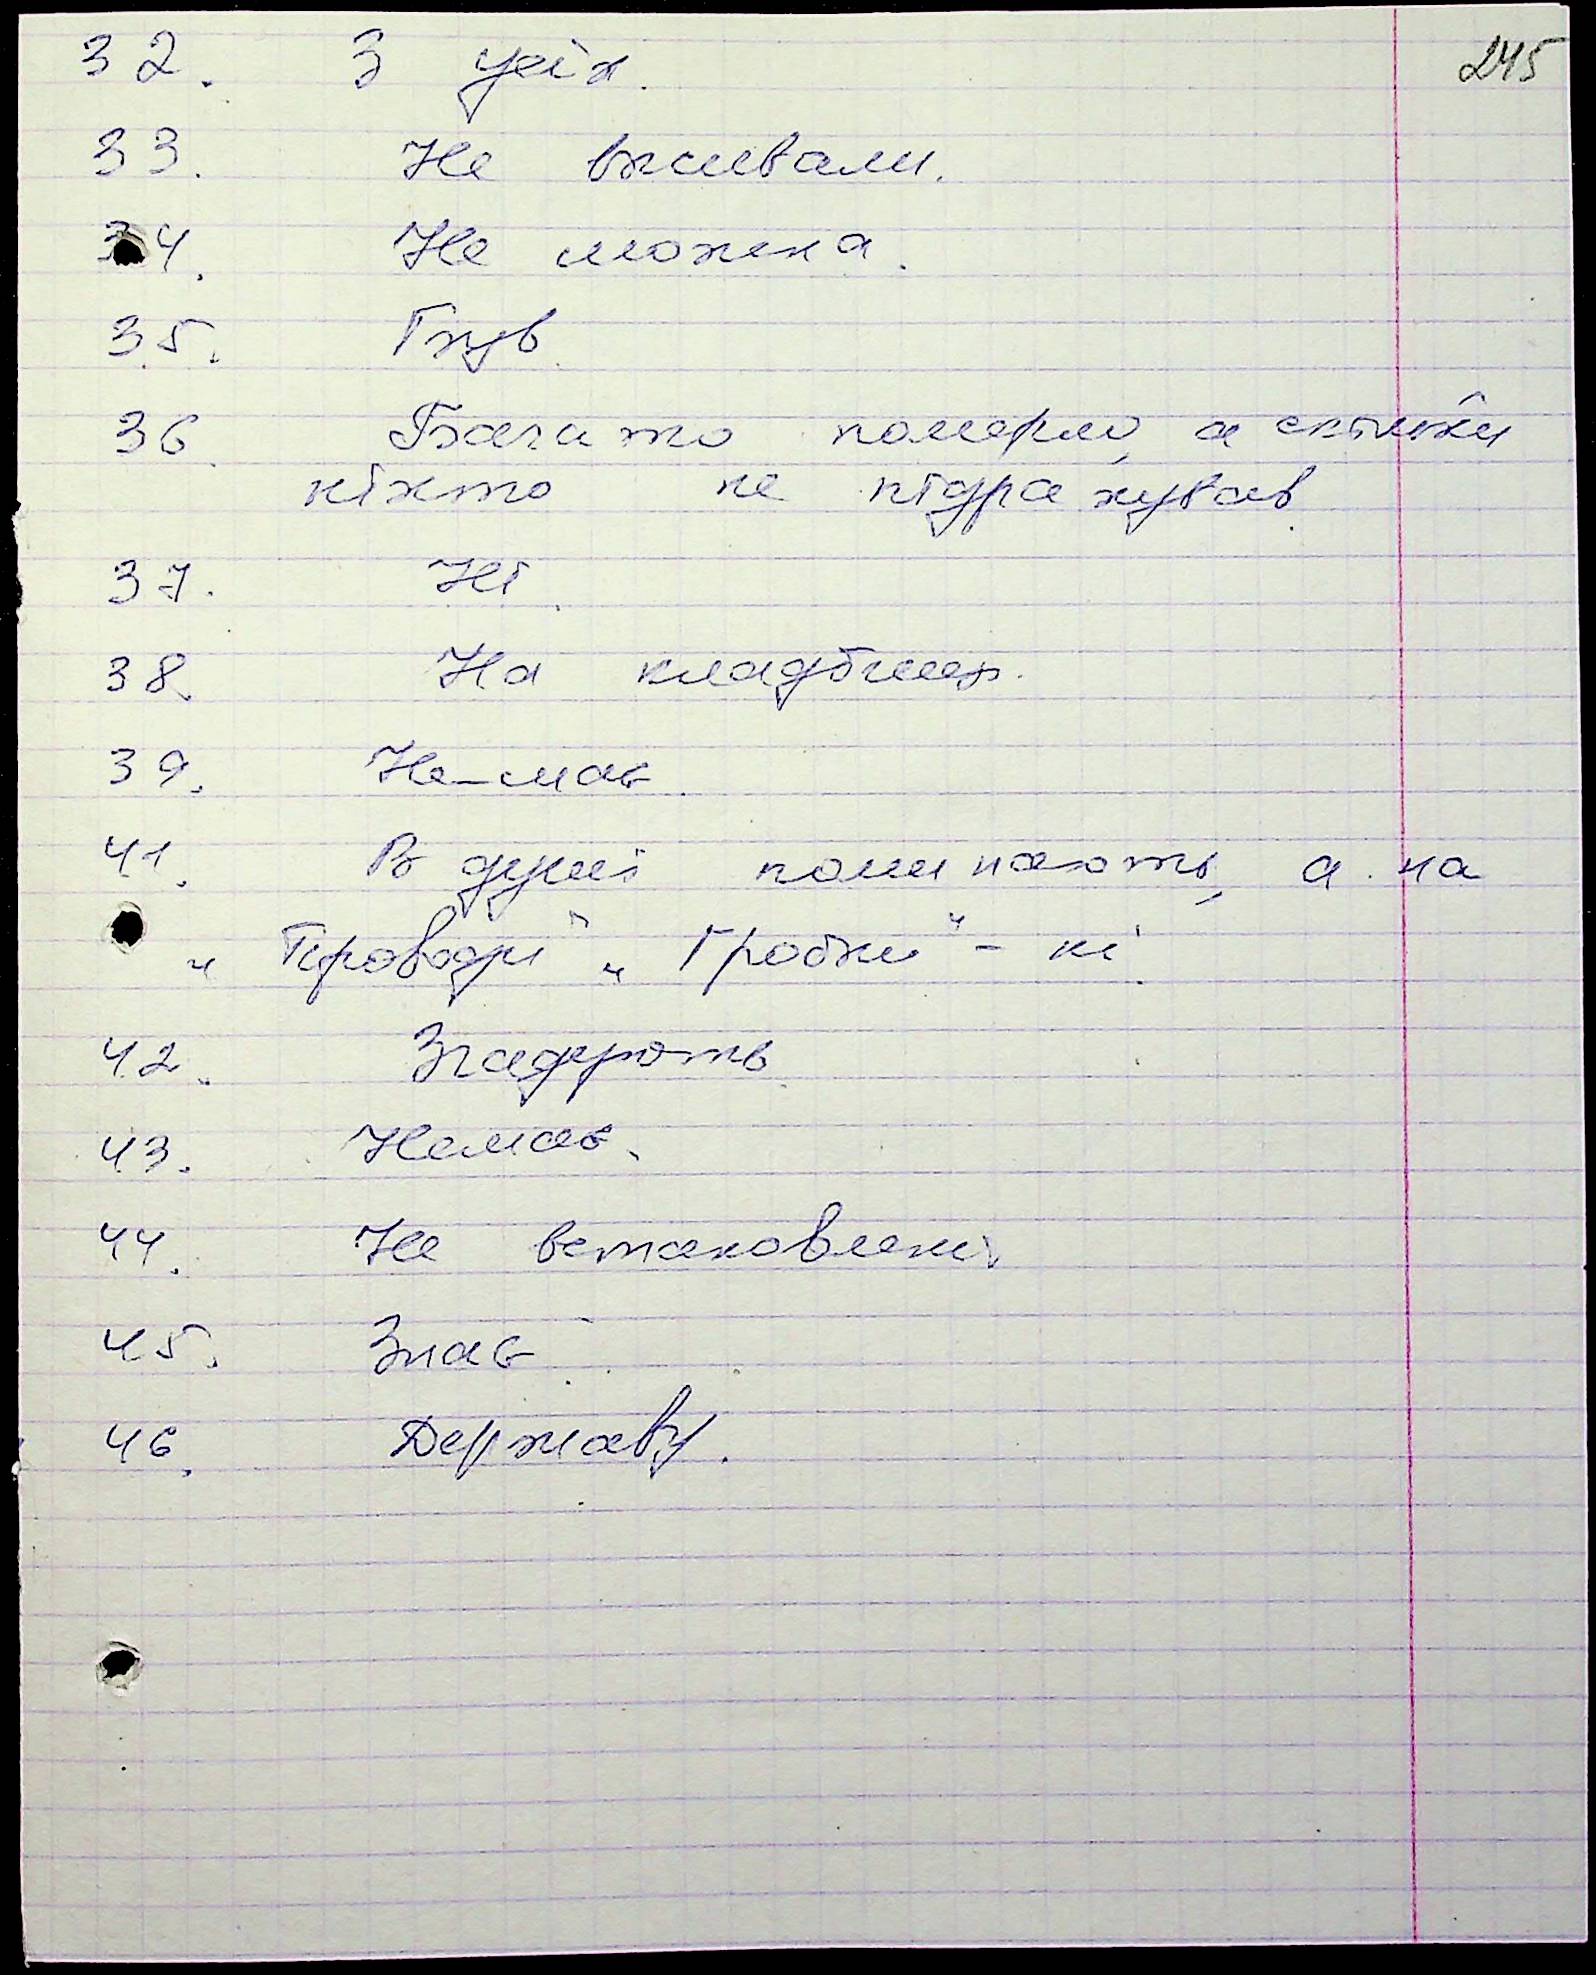 245
32. З усіх.
33. Не вживали.
34. Не можна.
35. Їжу.
36. Багато померло, а скільки
ніхто не підрахував.
37. Ні.
38. На кладбищі.
39. Не має.
41. В душі поминають, а на
"Проводи" "Гробки" - ні.
42. Згадують
43. Немає.
44. Не встановлені.
45. Знає
46. Державу.